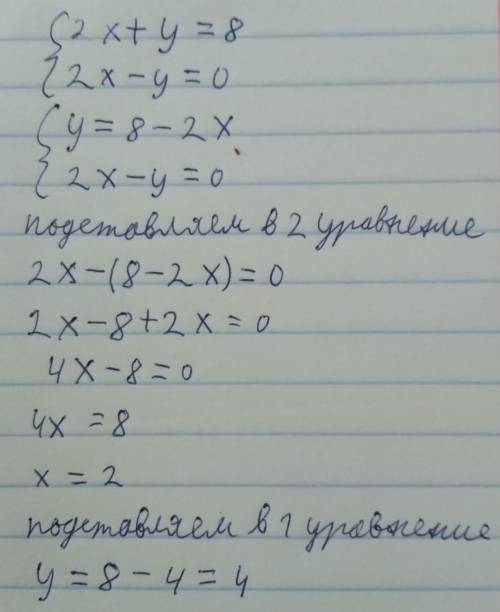 {2x+y=8
{2x-y=0
{y=8-2x
{2x-y=0
подставляем в 2 уравнение
2x-(8-2x)=0
2x-8+2x=0
4x-8=0
4x=8
x=2
подставляем в 1 уравнение
y=8-4=4